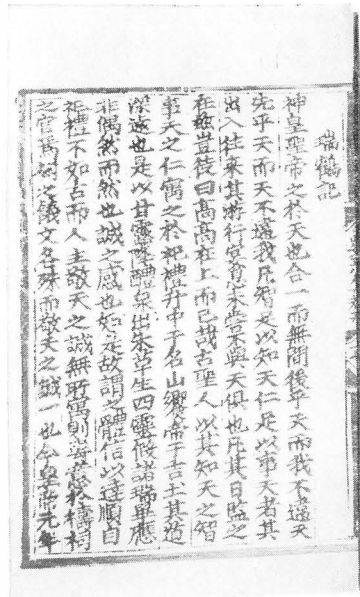 瑞鶴記
神皇聖帝之於天也合一而無間後乎天而我不違天
先乎天而天不違我凡智足以知天仁足以事天者其
出入往來其游行宴息未嘗不與天俱也凡其日監之
在玆豈徒曰高高在上而已哉古聖人以其知天之智
事天之仁寓之於祀禮升中于名山饗帝于吉土其過
深遠也是以甘露降醴泉出朱草生四靈假諸瑞畢應
非偶然而然也誠之感也知是故謂之體信以達順自
祀禮不如古而人主敬天之誠無所寓則寓意於禱祠
之官焉祠之儀文名殊而敬天之誠一也今皇帝元年